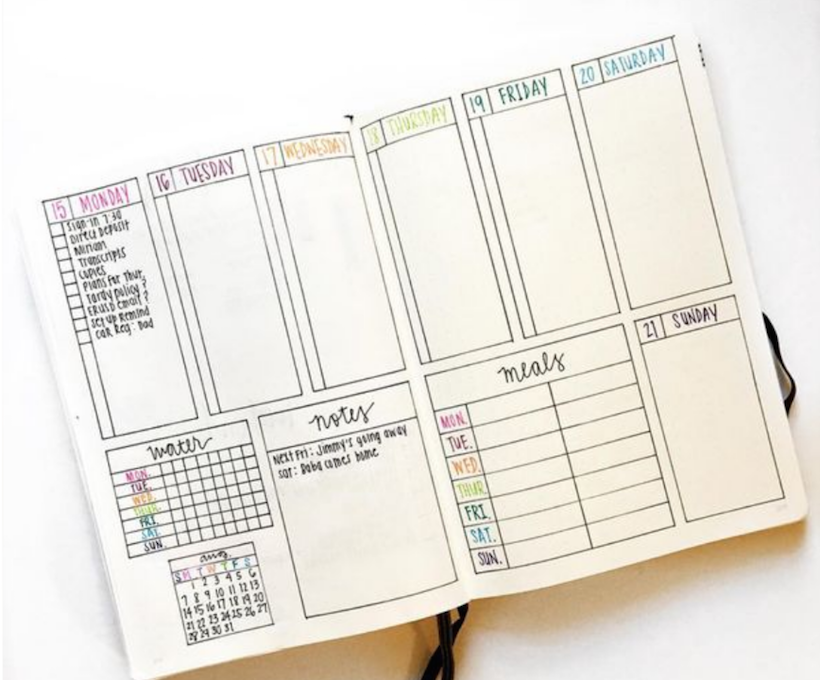 15 MONDAY
Sign-in 7:30
Direct Deposit
Miriam
Transcripts
Copies
Plans for Thur.
Tardy policy?
ERUSD email?
Set up Remind
Car Reg: Dad
16 TUESDAY
17 WEDNESDAY
18 THURSDAY
19 FRIDAY
20 SATURDAY
21 SUNDAY
water
MON.
TUE.
WED.
THUR.
FRI.
SAT.
SUN.
aug.
S M T W T F S
1 2 3 4 5 6
7 8 9 10 11 12 13
14 15 16 17 18 19 20
21 22 23 24 25 26 27
28 29 30 31
notes
Next Fri: Jimmy's going away
Sat: Baba comes home
meals
MON.
TUE.
WED.
THUR.
FRI.
SAT.
SUN.